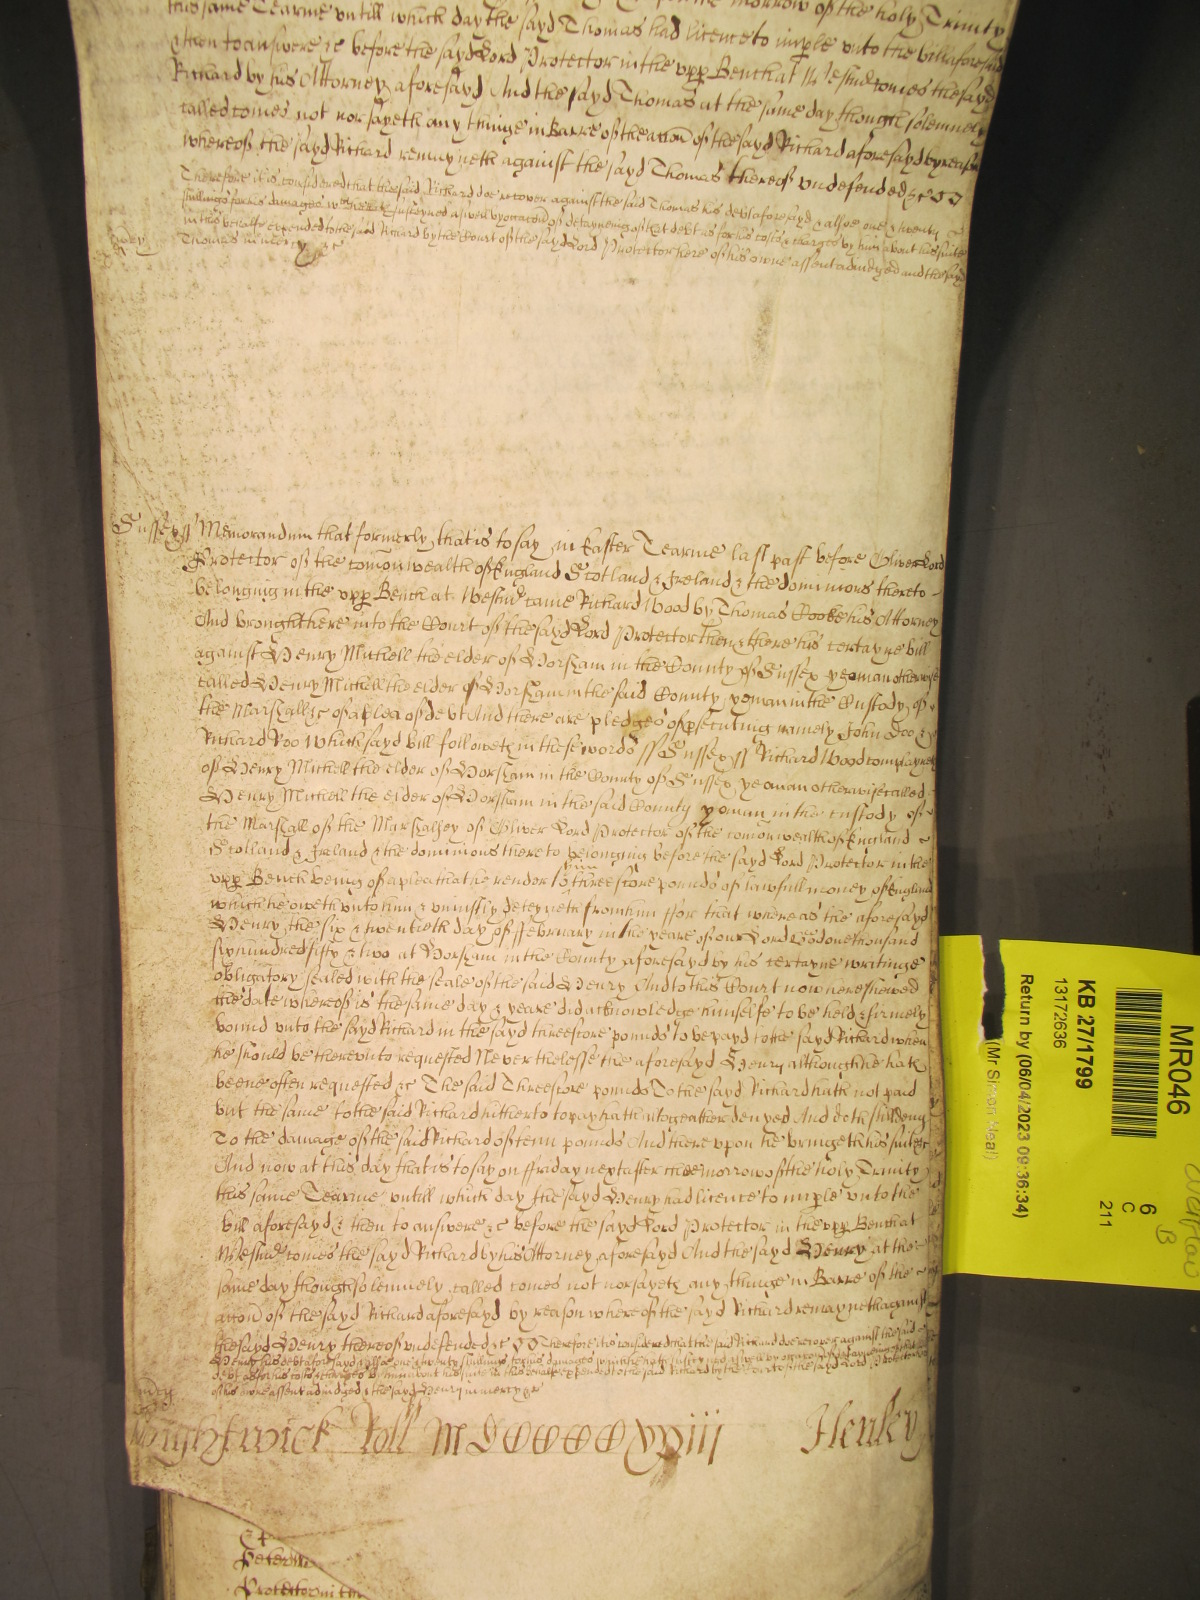 this same Tearme untill which day the sayd Thomas had licence to imple unto the bill aforesaid
& then to answere &c before the sayd Lord Protector in the upp Bench at Westmr comes the sayd
Richard by his Attorney aforesayd And the sayd Thomas at the same day though solemnely
called comes not nor sayeth any thinge in Barre of the accon of the sayd Richard aforesayd by reason
whereof the sayd Richard remayneth against the sayd Thomas thereof undefended &c
Therefore it is considered that the said Richard doe recover against the said Thomas his debt aforesayd & alsoe one & twenty
shillings for his damages wch hee hath susteyned aswell by occacon of detayneing of that debt as for his costs & charges by him about his suite
in this behalfe expended to the said Richard by the Court of the sayd Lord Protector here of his owne assent adiudged and the sayd
Thomas in mercy &c
Sussex ss Memorandum that formerly that is to say in Easter Tearme last past before Oliver Lord
Protector of the comon wealth of England Scotland & Ireland & the dominions thereto
belonging in the upp Bench at Westmr came Richard Wood by Thomas Cooke his Attorney
And brought here into the Court of the sayd Lord Protector then & there his certayne bill
against Henry Michell the elder of Horsham in the County of Sussex yeoman otherwise
called Henry Michell the elder of Horsham in the said County yoman in the Custody of
the Marshall &c of a plea of debt And there are pledges of psecuting namely John Doo &
Richard Roo Which sayd bill followeth in these words ss Sussex ss Richard Wood complayneth
of Henry Michell the elder of Horsham in the County of Sussex yeoman otherwise called
Henry Michell the elder of Horsham in the said County yoman in the custody of
the Marshall of the Marshalsey of Oliver Lord Protector of the comon wealth of England
Scotland & Ireland & the dominions there to belonging before the sayd Lord Protector in the
upp Bench being of a plea that he render to him threescore pounds of lawfull money of England
which he oweth unto him & uniustly deteyneth from him ffor that whereas the aforesayd
Henry the six & twentieth day of ffebruary in the yeare of our Lord God one thousand
six hundred fifty & two at Horsham in the County aforesayd by his certayne writinge
obligatory sealed with the seale of the said Henry And to this Court now here shewed
the date whereof is the same day & yeare did acknowledge himselfe to be held & firmely
bound unto the sayd Richard in the sayd threescore pounds to be payd to the sayd Richard when
he should be thereunto requested Neverthelesse the aforesayd Henry although he hath
beene often requested &c The said Threescore pounds To the sayd Richard hath not paid
but the same to the said Richard hitherto to pay hath altogeather denyed And doth still deny
To the damage of the said Richard of tenn pounds And there upon he bringeth his suite &c
And now at this day that is to say on ffriday next after the morrow of the holy Trinity
this same Tearme untill which day the sayd Henry had licence to imple unto the
bill aforesayd & then to answere &c before the sayd Lord Protector in the upp Bench at
Westmr comes the sayd Richard by his Attorney aforesayd And the sayd Henry at the
same day though solemnely called comes not nor sayeth any thinge in Barre of the
accon of the sayd Richard aforesayd by reason whereof the sayd Richard remayneth against
the sayd Henry thereof undefended &c Therefore it is considered that the said Richard doe recover against the said
Henry his debt aforesayd & alsoe one & twenty shillings for his damages which he hath susteyned aswell by occacon of detayneing of that
debt as for his costs & charges by him about his suite in this behalfe expended to the said Richard by the Court of the sayd Lord Protector
of his owne assent adiudged & the sayd Henry in mercy &c
Roll MDCCCCCXXiii Henley
Protector in the
MR046
KB 27/1799
13172636
6
C
211
Return by (06/04/2023 09:36:34)